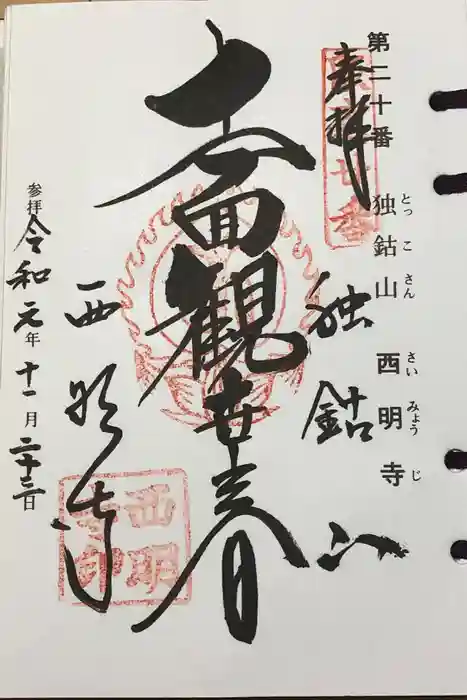 第二十番 独鈷山 西明寺
とっ こ さん さい みょう じ
奉拝
坂東廿番
独鈷山
十一面観世音
西明寺
西明寺印
参拝 令和元年十一月二十三日